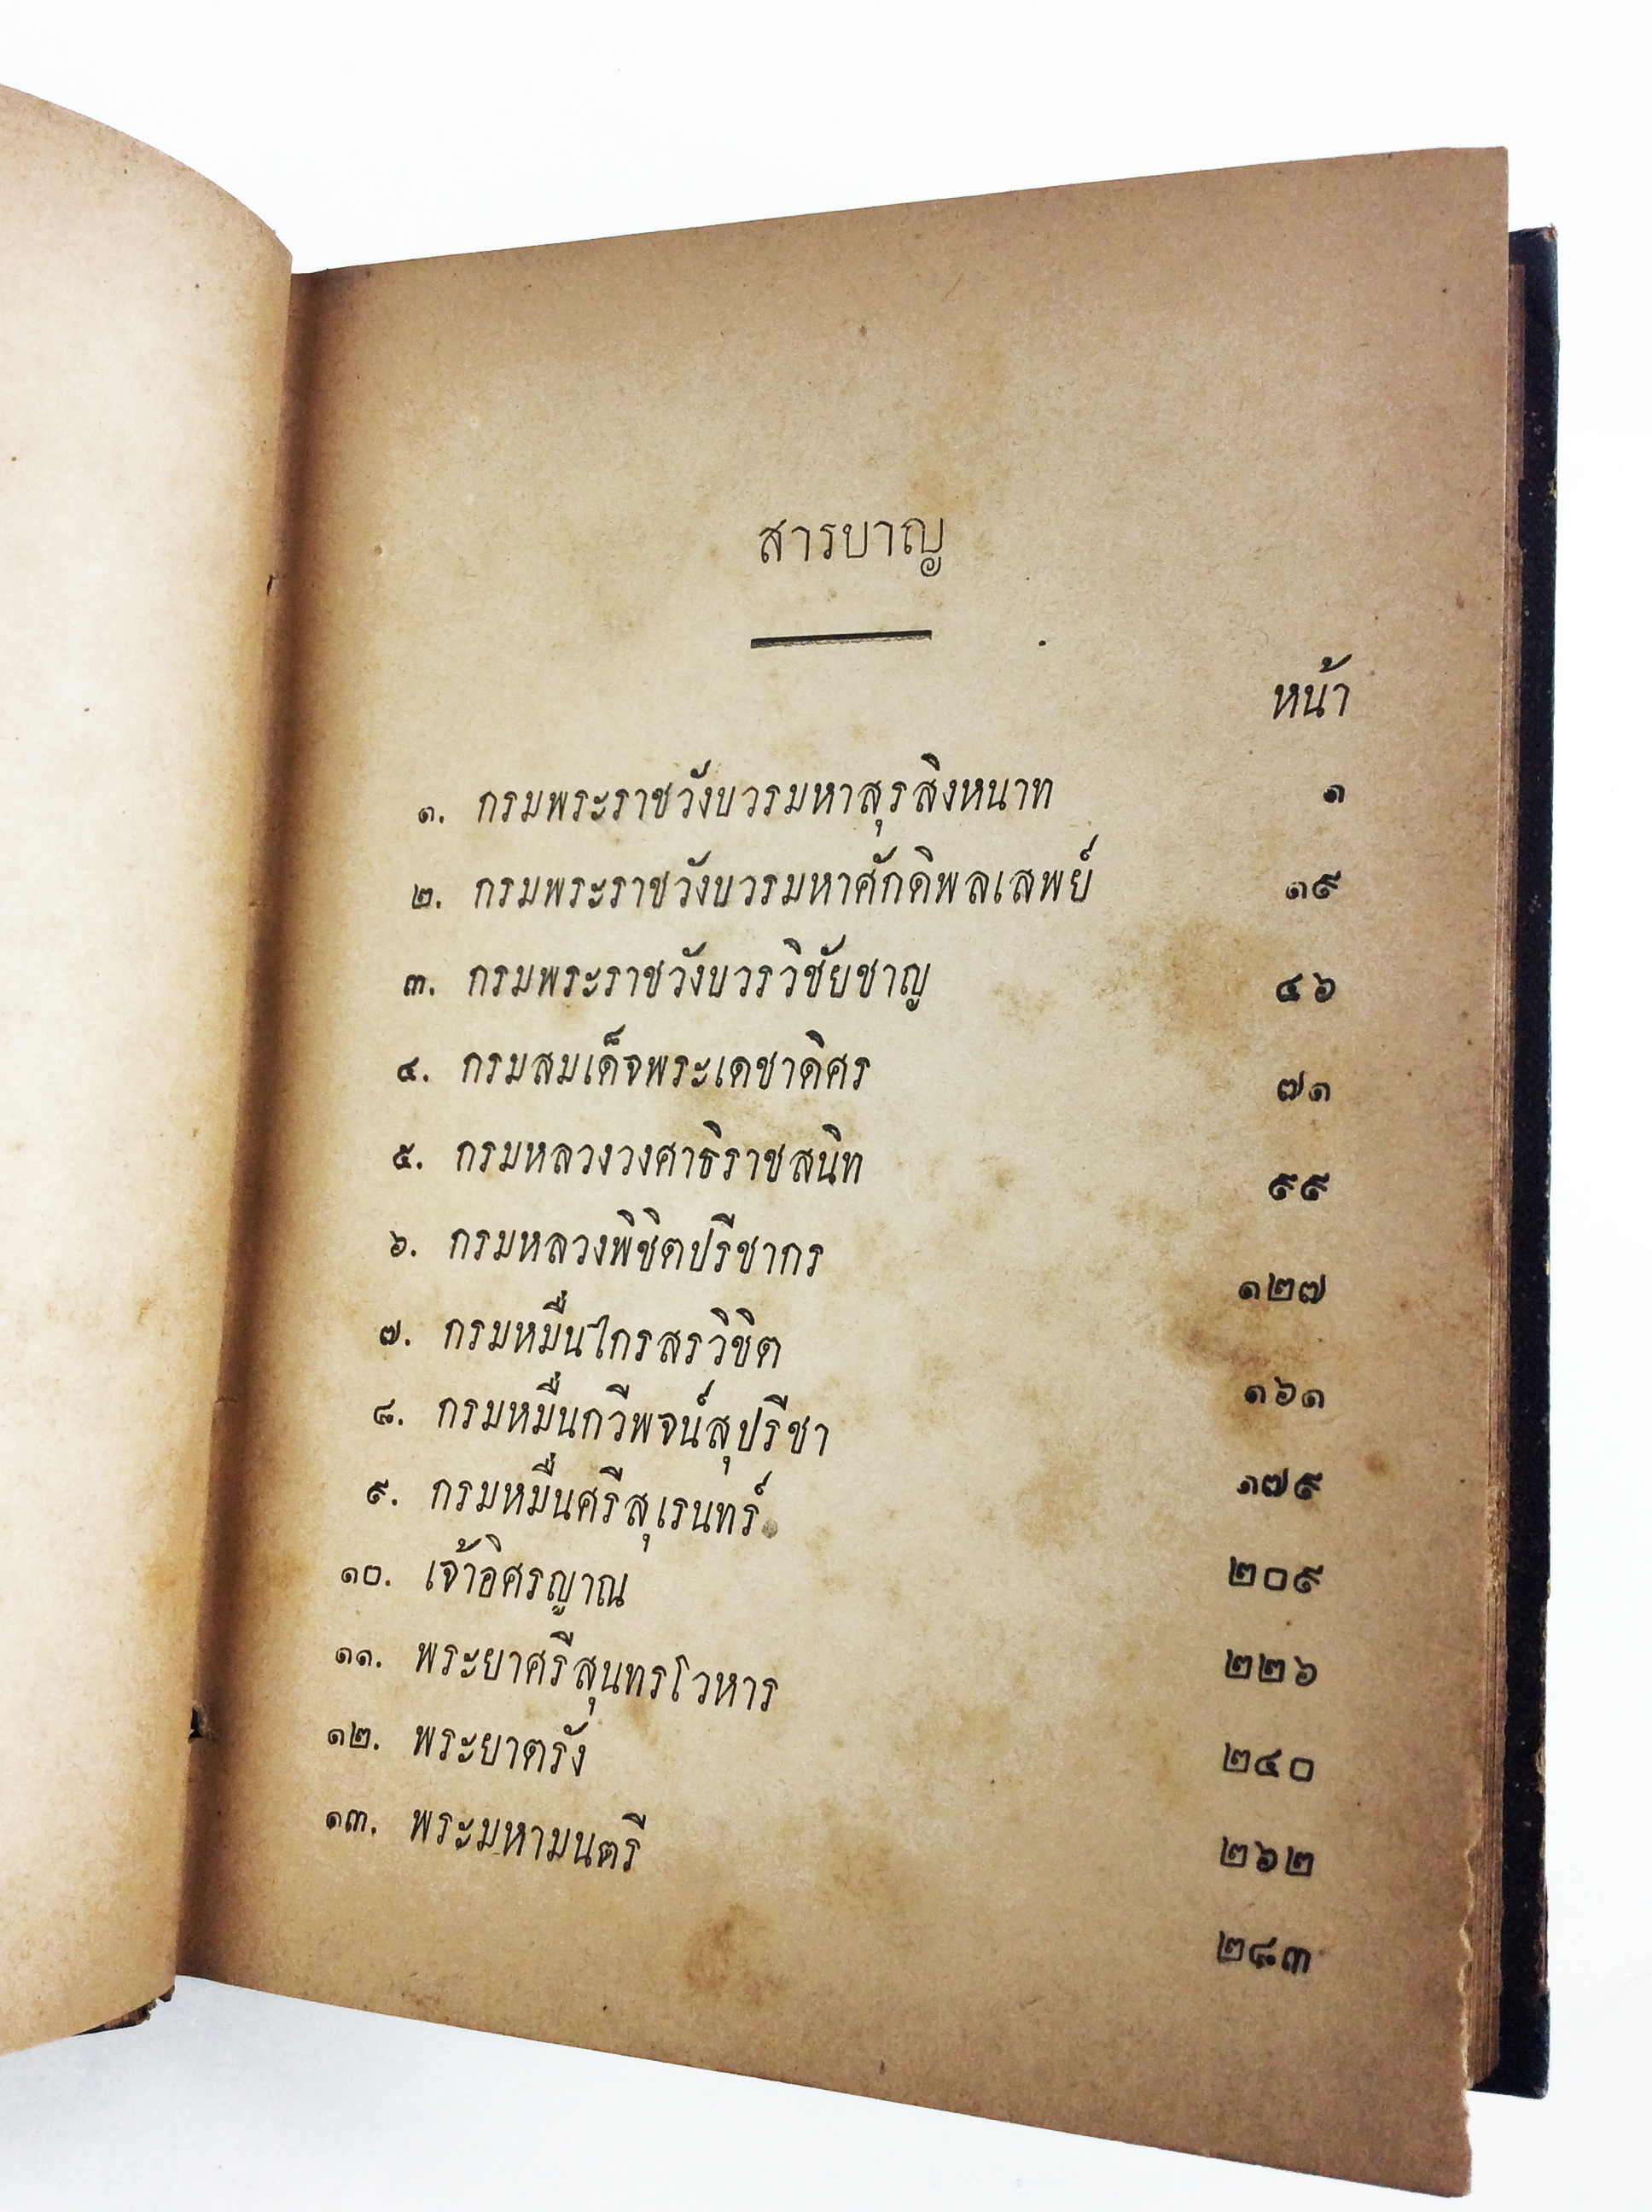 สารบาญ
หน้า
๑. กรมพระราชวังบวรมหาสุรสิงหนาท ๑
๒. กรมพระราชวังบวรมหาศักดิพลเสพย์ ๑๙
๓. กรมพระราชวังบวรวิชัยชาญ ๔๖
๔. กรมสมเด็จพระเดชาดิศร ๗๑
๕. กรมหลวงวงศาธิราชสนิท ๙๙
๖. กรมหลวงพิชิตปรีชากร ๑๒๗
๗. กรมหมื่นไกรสรวิชิต ๑๖๑
๘. กรมหมื่นกวีพจน์สุปรีชา ๑๗๙
๙. กรมหมื่นศรีสุเรนทร์ ๒๐๙
๑๐. เจ้าอิศรญาณ ๒๒๖
๑๑. พระยาศรีสุนทรโวหาร ๒๔๐
๑๒. พระยาตรัง ๒๖๒
๑๓. พระมหามนตรี ๒๘๓